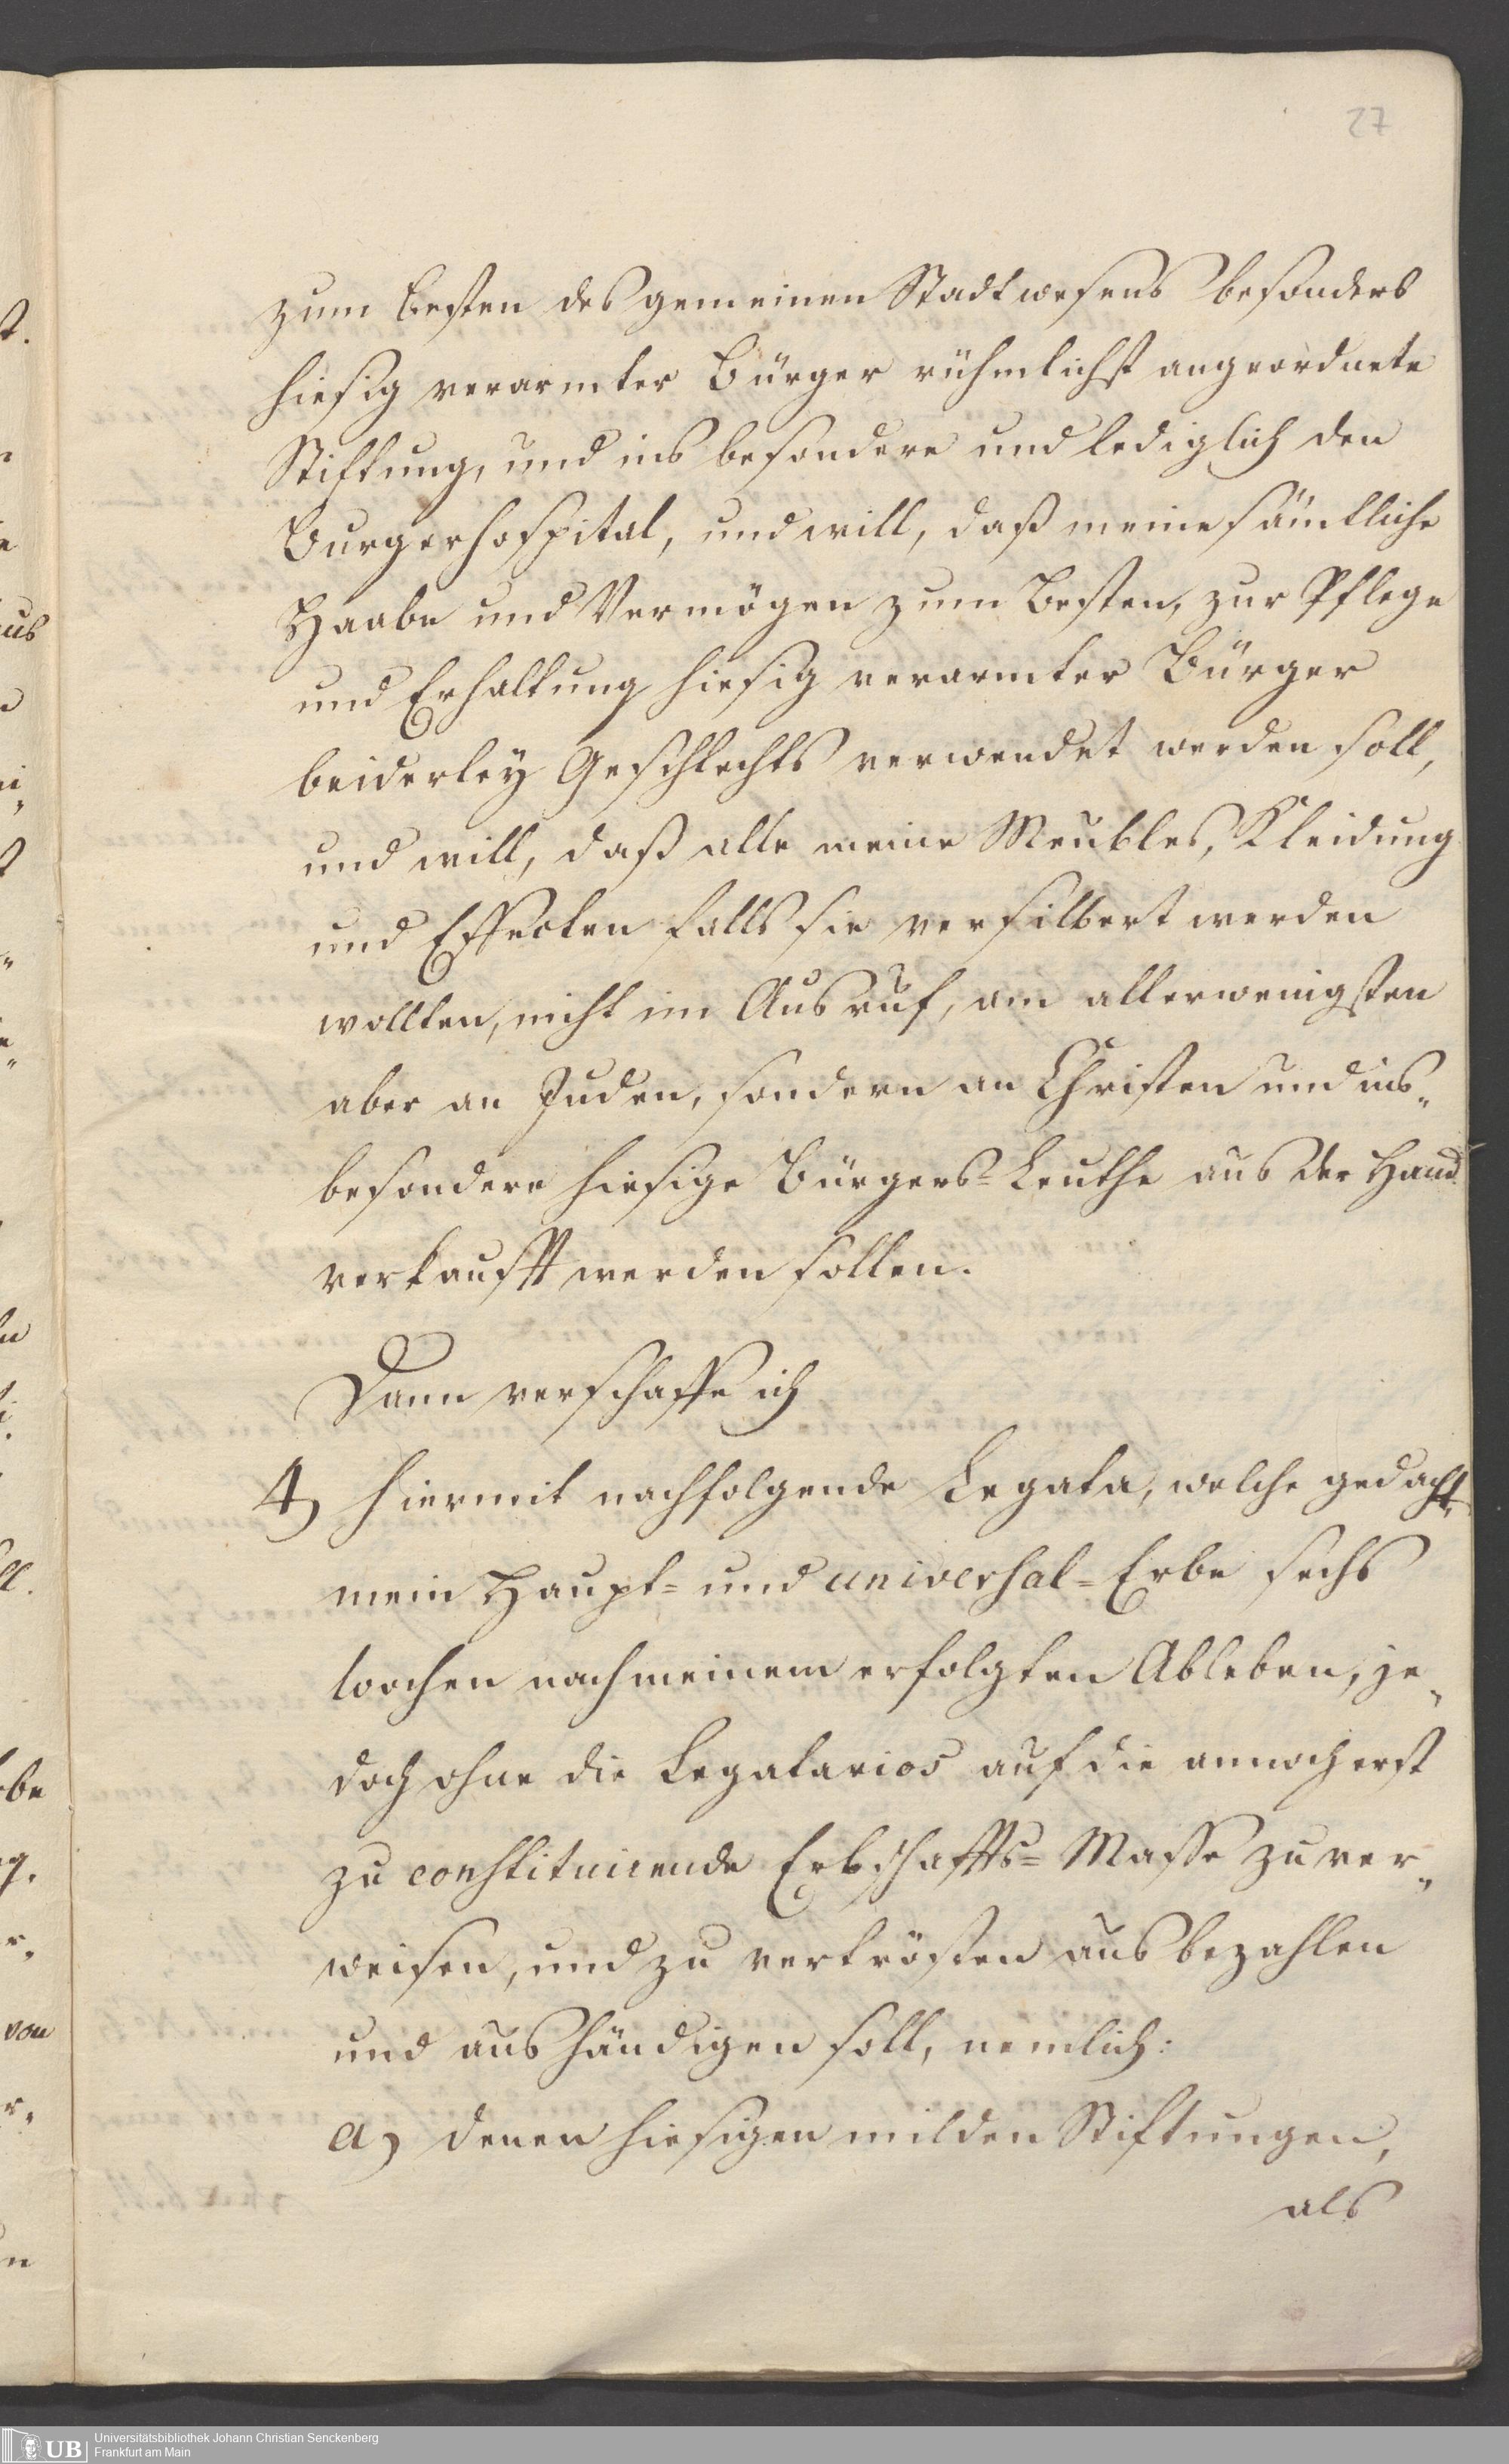 27
zum besten des gemeinen Stadtwesens besonders
hiesig verarmter Bürger rühmlichst angeordnete
Stiftung, und ins besondere und lediglich den
Burgerhospital, und will, daß meine sämtliche
Haabe und Vermögen zum Besten, zur Pflege
und Erhaltung hiesig verarmter Bürger
beiderley Geschlechts verwendet werden soll,
und will, daß alle meine Meubles, Kleidung
und Effecten falls sie versilbert werden
wollten, nicht im Ausruf, am allerwenigsten
aber an Juden, sondern an Christen und ins„
besondere hiesige Bürgers=Leuthe aus der Hand
verkaufft werden sollen.
Dann verschaffe ich
4) hiermit nachfolgende Legata, welche gedacht„
mein Haupt= und universal=Erbe sechs
wochen nach meinem erfolgten Ableben, je„
doch ohne die Legatarios auf die annoch erst
zu constituirende Erbschaffts=Masse zu ver„
weisen, und zu vertrösten ausbezahlen
und aushändigen soll, nemlich:
a) denen hiesigen milden Stiftungen,
als
UB
Universitätsbibliothek Johann Christian Senckenberg
Frankfurt am Main